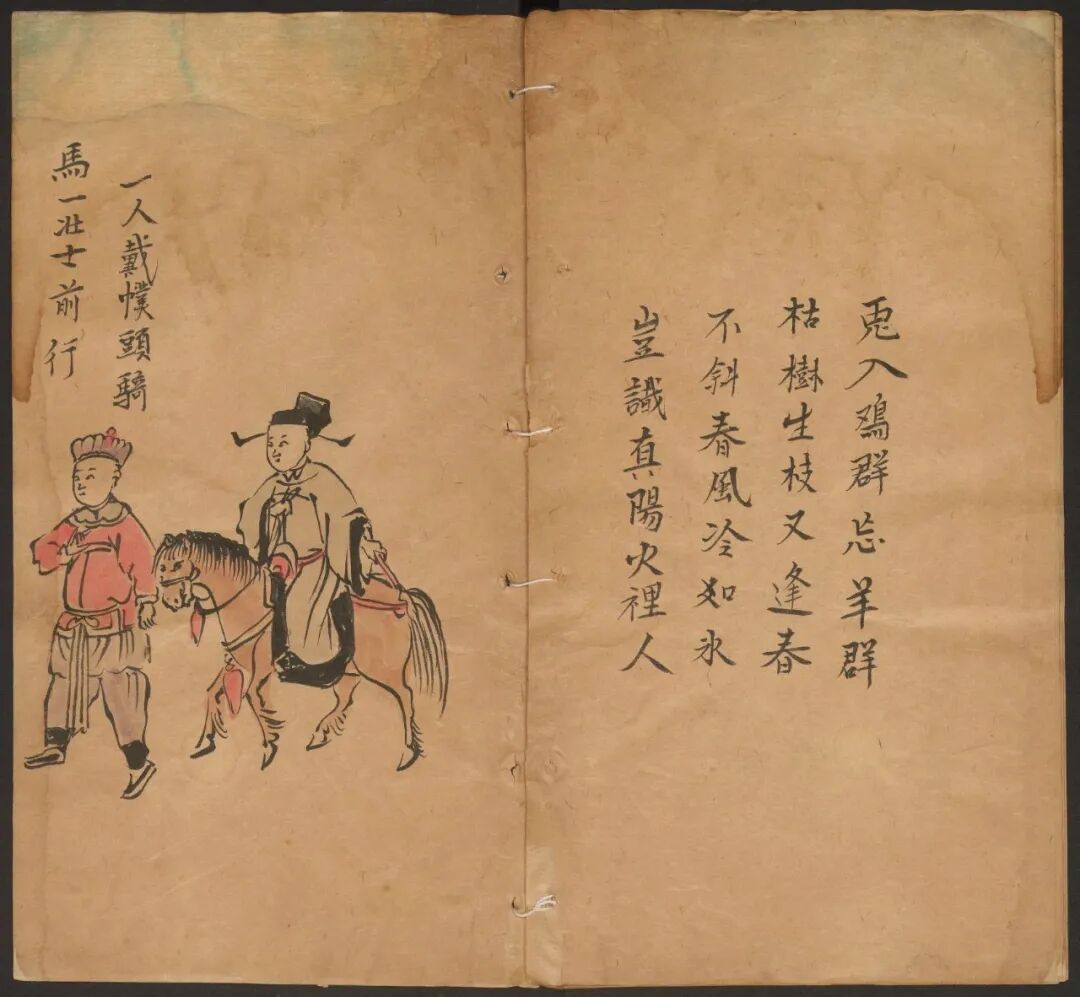 兎入鷄群忘羊群
枯樹生枝又逢春
不斜春風冷如氷
豈識真陽火裡人
一人戴幞頭騎
馬一壮士前行